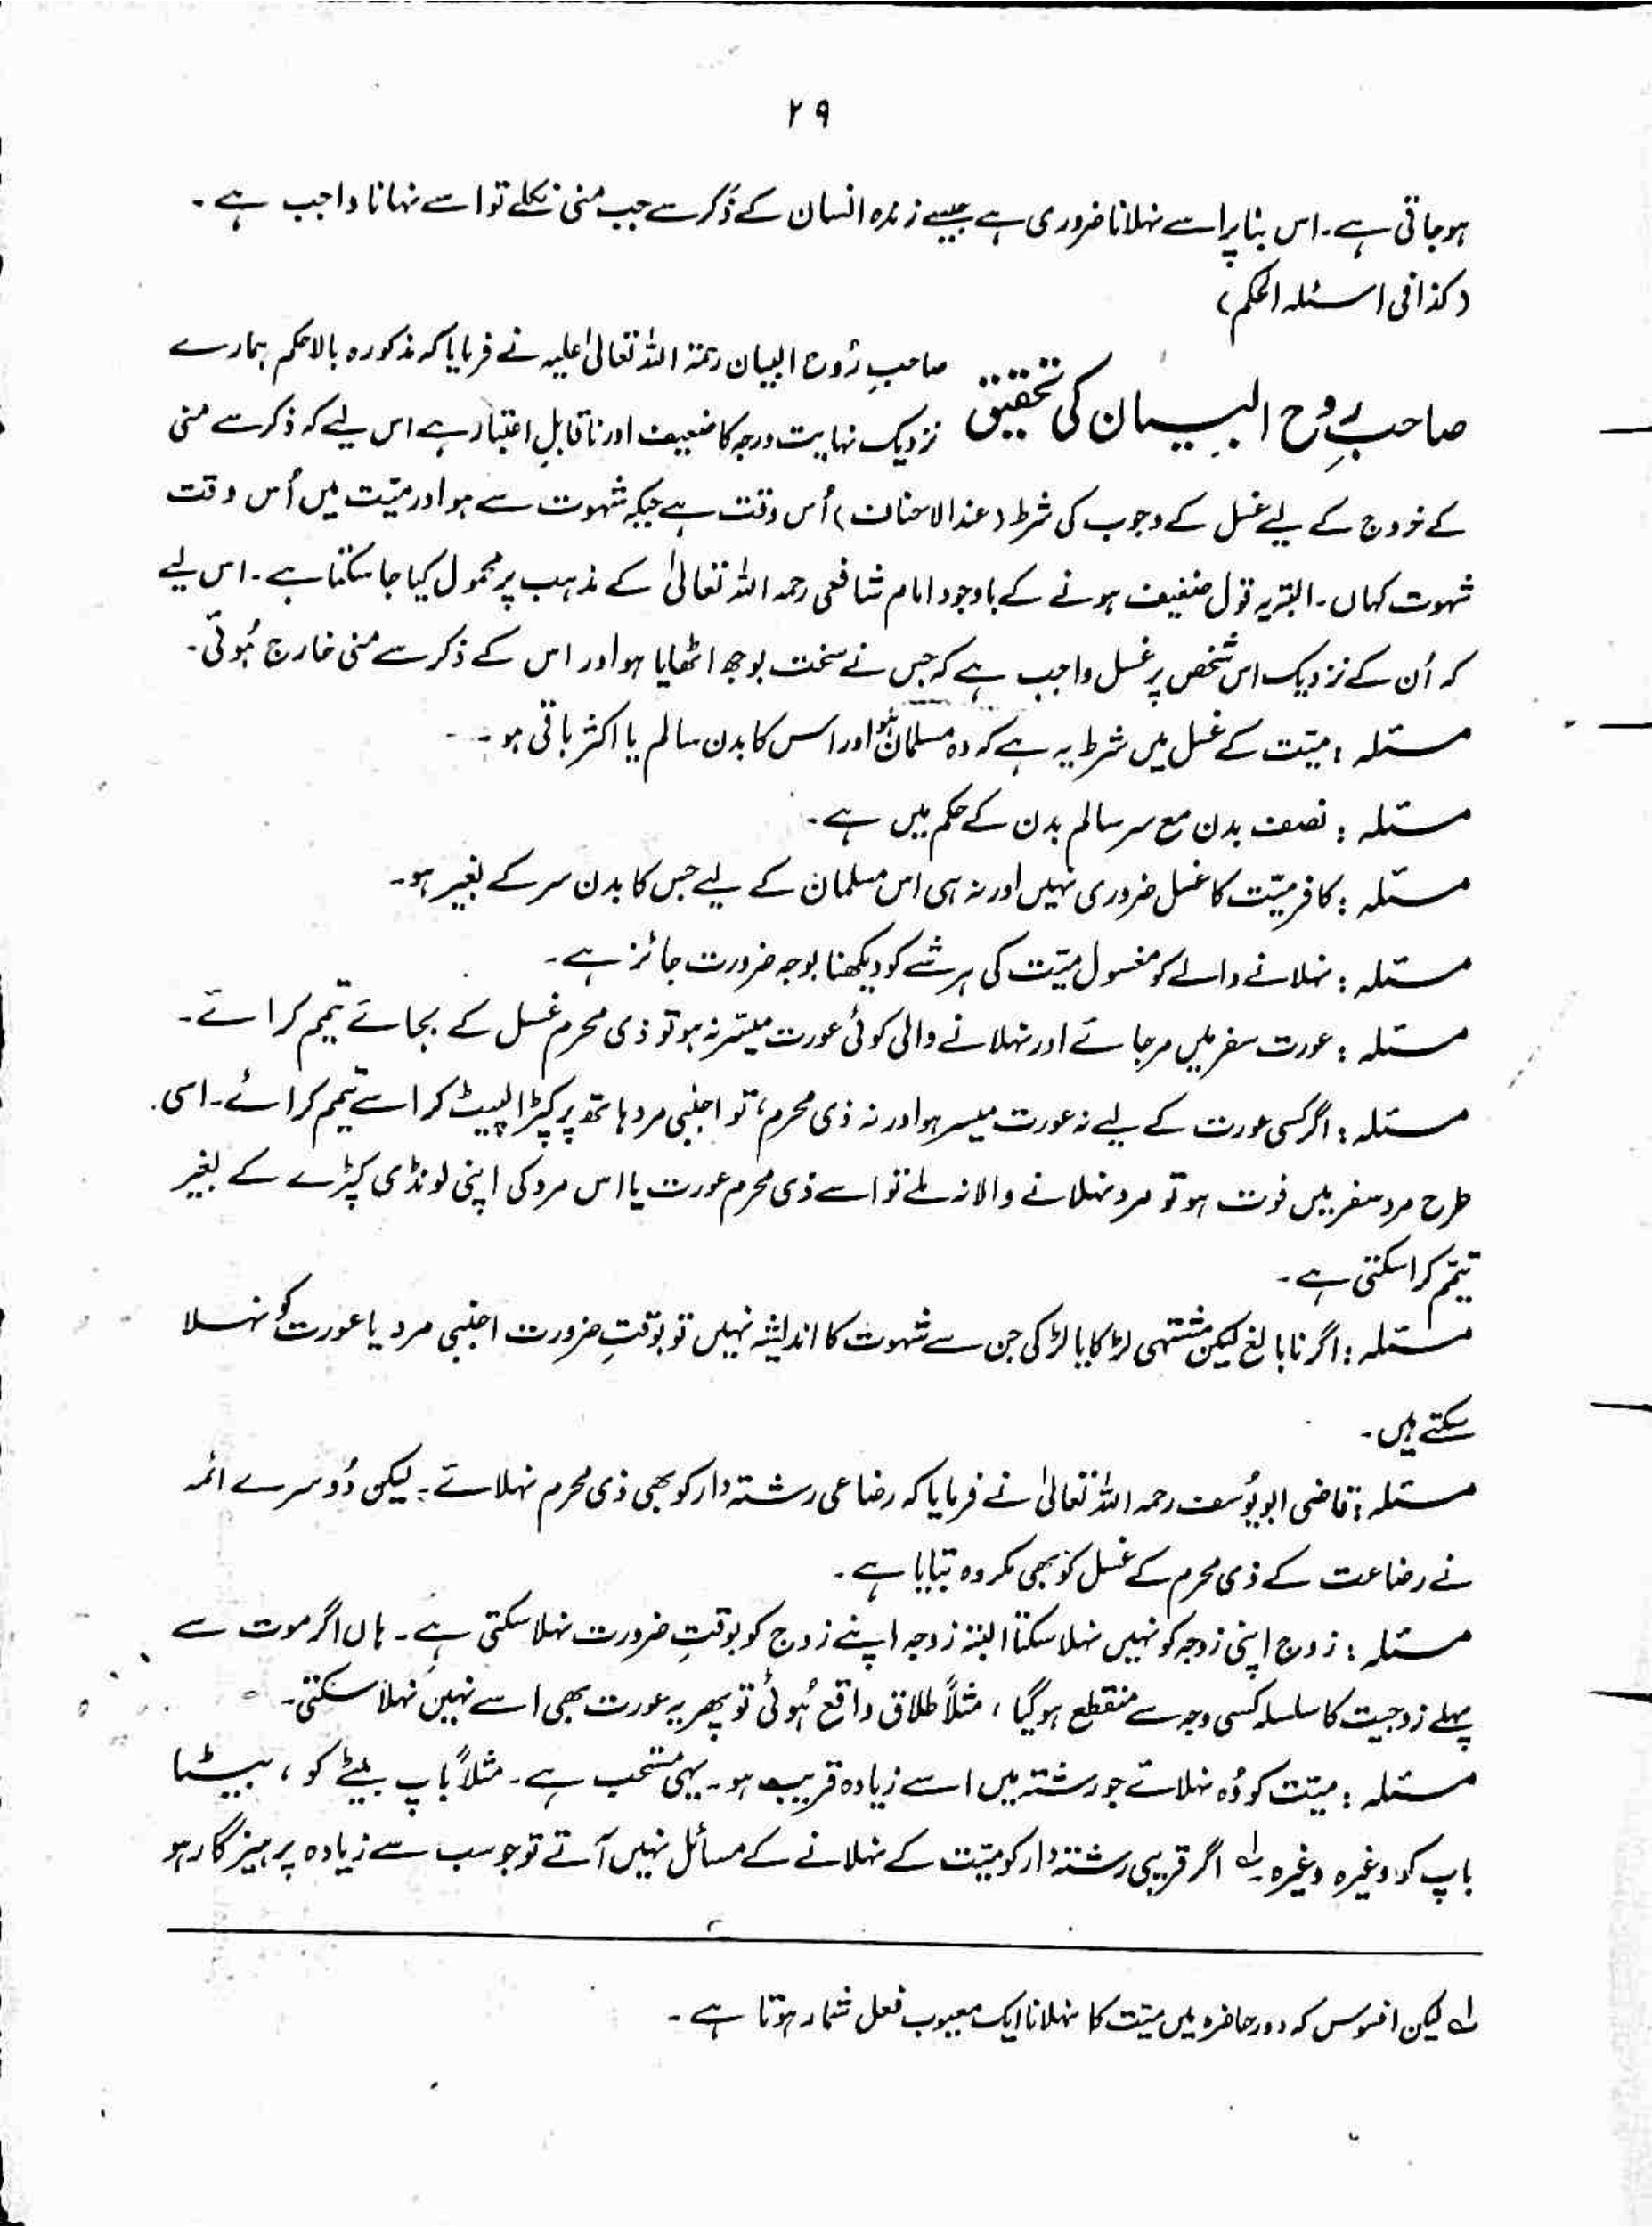 ۲۹
ہوجاتی ہے۔ اس بنا پر اسے نہلانا ضروری ہے جیسے زندہ انسان کے ذَکر سے جب منی نکلے تو اسے نہانا واجب ہے۔
(کذا فی اسئلہ الحکم)
صاحبِ رُوح البیان کی تحقیق صاحبِ رُوح البیان رحمۃ اللہ تعالیٰ علیہ نے فرمایا کہ مذکورہ بالا حکم ہمارے
نزدیک نہایت درجہ کا ضعیف اور ناقابلِ اعتبار ہے اس لیے کہ ذکر سے منی
کے خروج کے لیے غسل کے وجوب کی شرط (عند الاحناف) اُس وقت ہے جبکہ شہوت سے ہو اور میّت میں اُس وقت
شہوت کہاں۔ البتہ یہ قول ضعیف ہونے کے باوجود امام شافعی رحمہ اللہ تعالیٰ کے مذہب پر محمول کیا جا سکتا ہے۔ اس لیے
کہ اُن کے نزدیک اس شخص پر غسل واجب ہے کہ جس نے سخت بوجھ اٹھایا ہو اور اس کے ذکر سے منی خارج ہُوئی۔
مسئلہ : میّت کے غسل میں شرط یہ ہے کہ وہ مسلمان ہو اور اس کا بدن سالم یا اکثر باقی ہو۔
مسئلہ : نصف بدن مع سر سالم بدن کے حکم میں ہے۔
مسئلہ : کافر میّت کا غسل ضروری نہیں اور نہ ہی اس مسلمان کے لیے جس کا بدن سر کے بغیر ہو۔
مسئلہ : نہلانے والے کو مغسول میّت کی ہر شے کو دیکھنا بوجہ ضرورت جائز ہے۔
مسئلہ : عورت سفر میں مرجائے اور نہلانے والی کوئی عورت میسّر نہ ہو تو ذی محرم غسل کے بجائے تیمم کرائے۔
مسئلہ : اگر کسی عورت کے لیے نہ عورت میسر ہو اور نہ ذی محرم، تو اجنبی مرد ہاتھ پر کپڑا لپیٹ کر اسے تیمم کرائے۔ اسی
طرح مرد سفر میں فوت ہو تو مرد نہلانے والا نہ ملے تو اسے ذی محرم عورت یا اس مرد کی اپنی لونڈی کپڑے کے بغیر
تیمّم کرا سکتی ہے۔
مسئلہ : اگر نابالغ لیکن مشتہی لڑکا یا لڑکی جن سے شہوت کا اندیشہ نہیں تو بوقتِ ضرورت اجنبی مرد یا عورت کو نہلا
سکتے ہیں۔
مسئلہ : قاضی ابویُوسف رحمہ اللہ تعالیٰ نے فرمایا کہ رضاعی رشتہ دار کو بھی ذی محرم نہلائے۔ لیکن دُوسرے ائمہ
نے رضاعت کے ذی محرم کے غسل کو بھی مکروہ بتایا ہے۔
مسئلہ : زوج اپنی زوجہ کو نہیں نہلا سکتا البتہ زوجہ اپنے زوج کو بوقتِ ضرورت نہلا سکتی ہے۔ ہاں اگر موت سے
پہلے زوجیت کا سلسلہ کسی وجہ سے منقطع ہوگیا، مثلاً طلاق واقع ہُوئی تو پھر یہ عورت بھی اسے نہیں نہلا سکتی۔
مسئلہ : میّت کو وُہ نہلائے جو رشتہ میں اسے زیادہ قریب ہو۔ یہی مستحب ہے۔ مثلاً باپ بیٹے کو، بیٹا
باپ کو وغیرہ وغیرہ۔ لہ اگر قریبی رشتہ دار کو میّت کے نہلانے کے مسائل نہیں آتے تو جو سب سے زیادہ پرہیزگار ہو
لہ لیکن افسوس کہ دورِ حاضرہ میں میّت کا نہلانا ایک معیوب فعل شمار ہوتا ہے۔